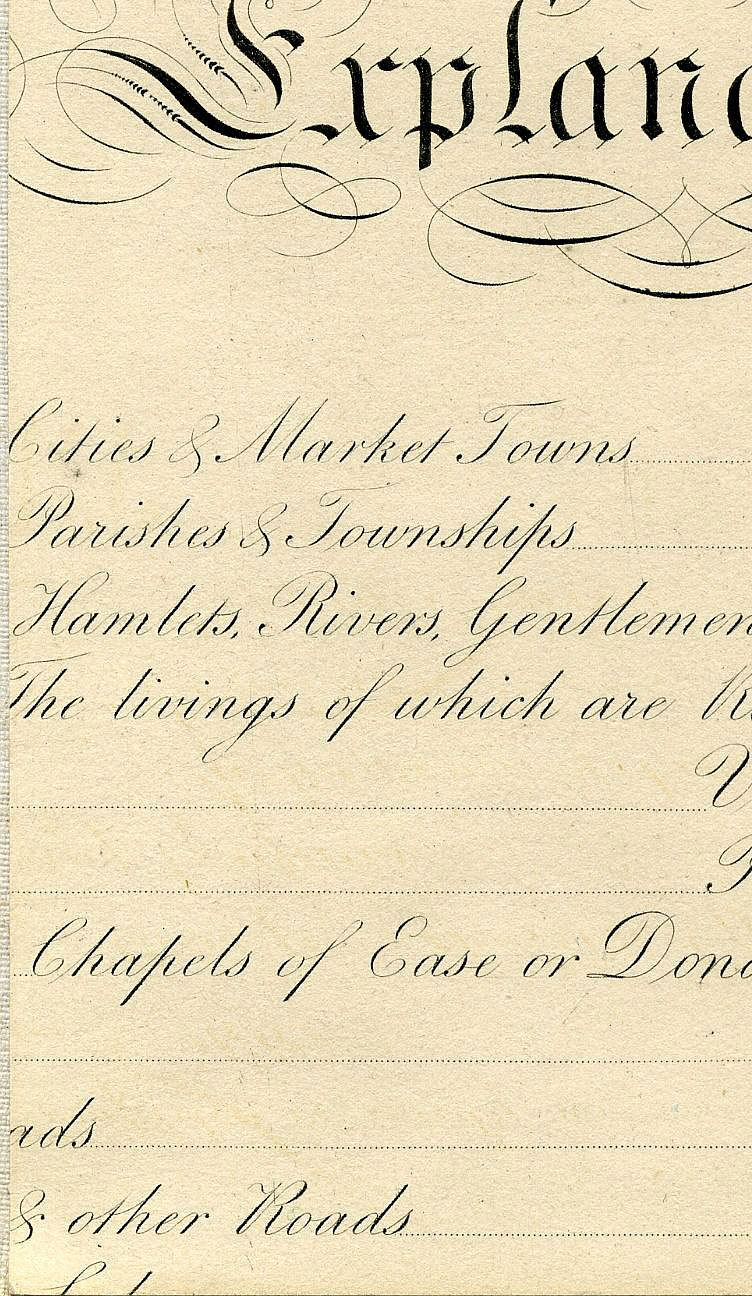 Explana
Cities & Market Towns
Parishes & Townships
Hamlets, Rivers, Gentlemen
The livings of which are R
V
P
Chapels of Ease or Dona
ads
& other Roads